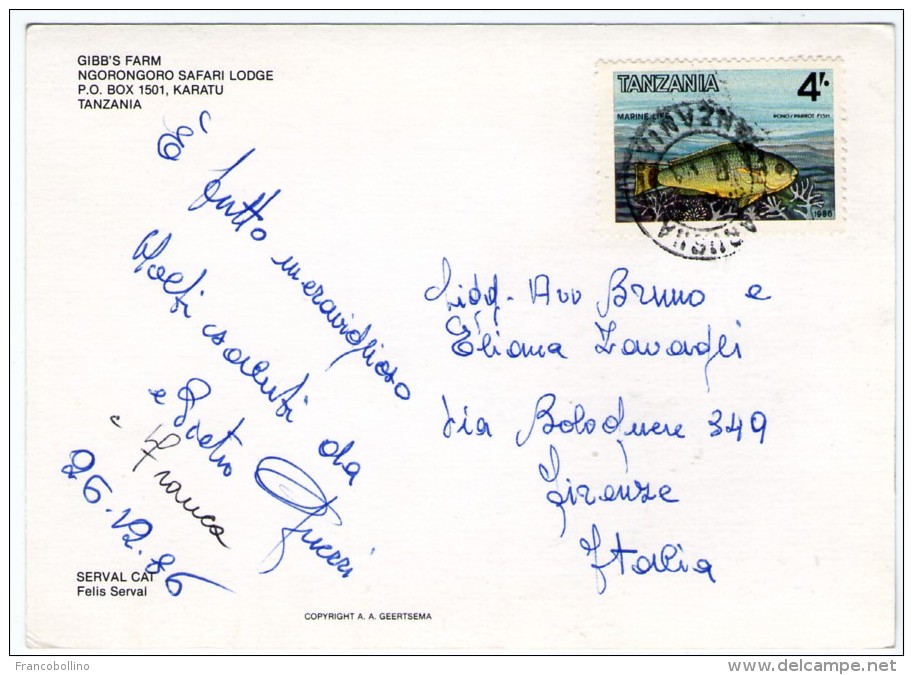 GIBB'S FARM
NGORONGORO SAFARI LODGE
P.O. BOX 1501, KARATU
TANZANIA
TANZANIA 4/-
MARINE LIFE PONO/PARROT FISH
1986
TANZANIA
ARUSHA
É tutto meraviglioso
Molti saluti da
e Pietro
e Franca
26.12.86
Sigg. Avv Bruno e
Eliana Zavagli
Via Bolognese 349
Firenze
Italia
SERVAL CAT
Felis Serval
COPYRIGHT A. A. GEERTSEMA
Francobollino
www.delcampe.net